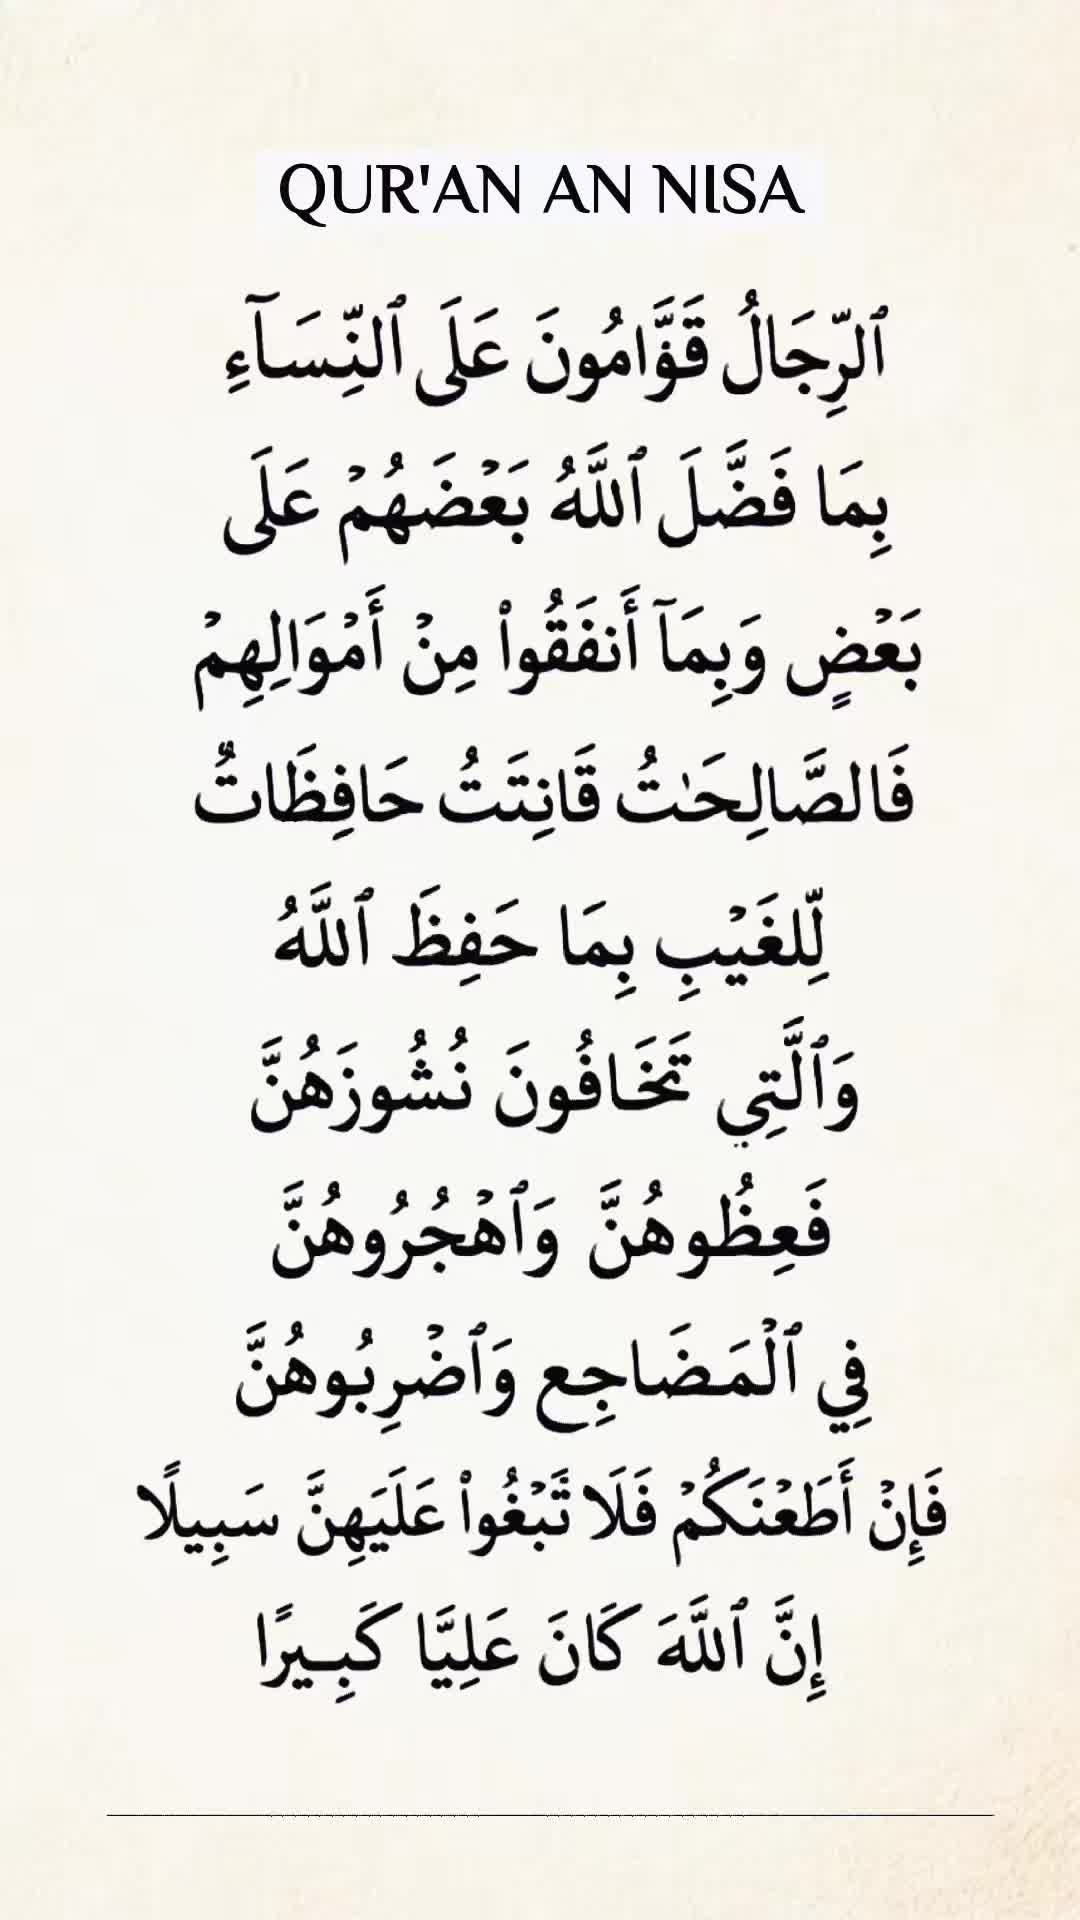 QUR'AN AN NISA
ٱلرِّجَالُ قَوَّامُونَ عَلَى ٱلنِّسَآءِ
بِمَا فَضَّلَ ٱللَّهُ بَعۡضَهُمۡ عَلَى
بَعۡضٍ وَبِمَآ أَنفَقُواْ مِنۡ أَمۡوَالِهِمۡ
فَالصَّالِحَٰتُ قَانِتَتُ حَافِظَاتٌ
لِّلغَيۡبِ بِمَا حَفِظَ ٱللَّهُ
وَٱلَّتِي تَخَافُونَ نُشُوزَهُنَّ
فَعِظُوهُنَّ وَٱهۡجُرُوهُنَّ
فِي ٱلۡمَضَاجِع وَٱضۡرِبُوهُنَّ
فَإِنۡ أَطَعۡنَكُمۡ فَلَا تَّبۡغُواْ عَلَيَهِنَّ سَبِيلًا
إِنَّ ٱللَّهَ كَانَ عَلِيَّا كَبِيرًا